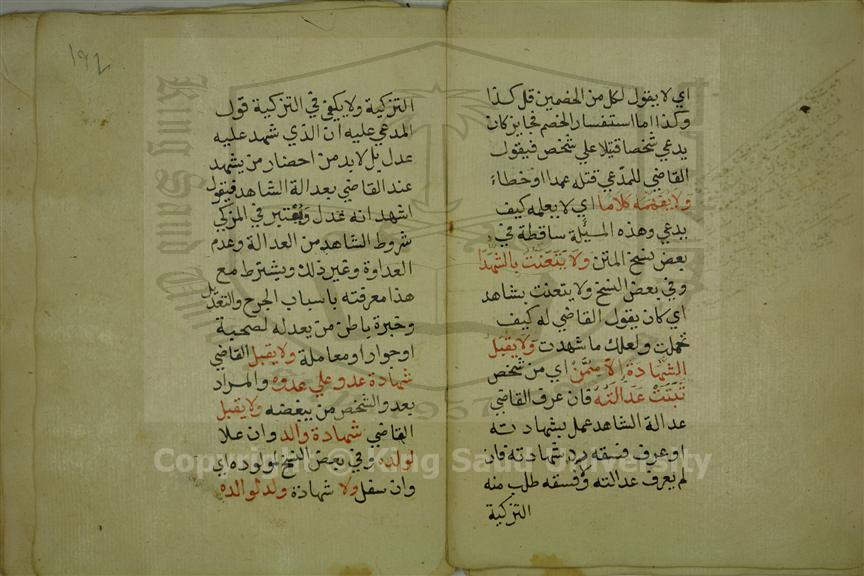 اي لا يقول لكل من الخصمين قل كذا
وكذا اما استفسار الخصم فجايز كان
يدعي شخصا قتيلا علي شخص فيقول
القاضي للمدعي قتله عمدا او خطاء
ولا يفهمه كلاما اي لا يعلمه كيف
يدعي وهذه المسيلة ساقطة في
بعض نسخ المتن ولا يتعنت بالشهدا
وفي بعض النسخ ولا يتعنت بشاهد
اي كان يقول القاضي له كيف
تحملت ولعلك ما شهدت ولا يقبل
الشهادة إلا ممن اي من شخص
ثبتت عدالته فان عرف القاضي
عدالة الشاهد عمل بشهادته
او عرف فسقه رد شهادته فان
لم يعرف عدالته ولا فسقه طلب منه
التزكية
192
التزكية ولا يكفي في التزكية قول
المدعي عليه ان الذي شهد عليه
عدل بل لا بد من احضار من يشهد
عند القاضي بعدالة الشاهد فيقول
اشهد انه عدل ويعتبر في المزكي
شروط الشاهد من العدالة وعدم
العداوة وغير ذلك ويشترط مع
هذا معرفته باسباب الجرح والتعديل
وخبرة باطن من يعدله لصحبة
او جوار او معاملة ولا يقبل القاضي
شهادة عدو علي عدوه والمراد
بعدو الشخص من يبغضه ولا يقبل
القاضي شهادة والد وان علا
لولده وفي بعض النسخ لمولوده اي
وان سفل ولا شهادة ولد لوالده
Copyright © King Saud University
King Saud University
1957